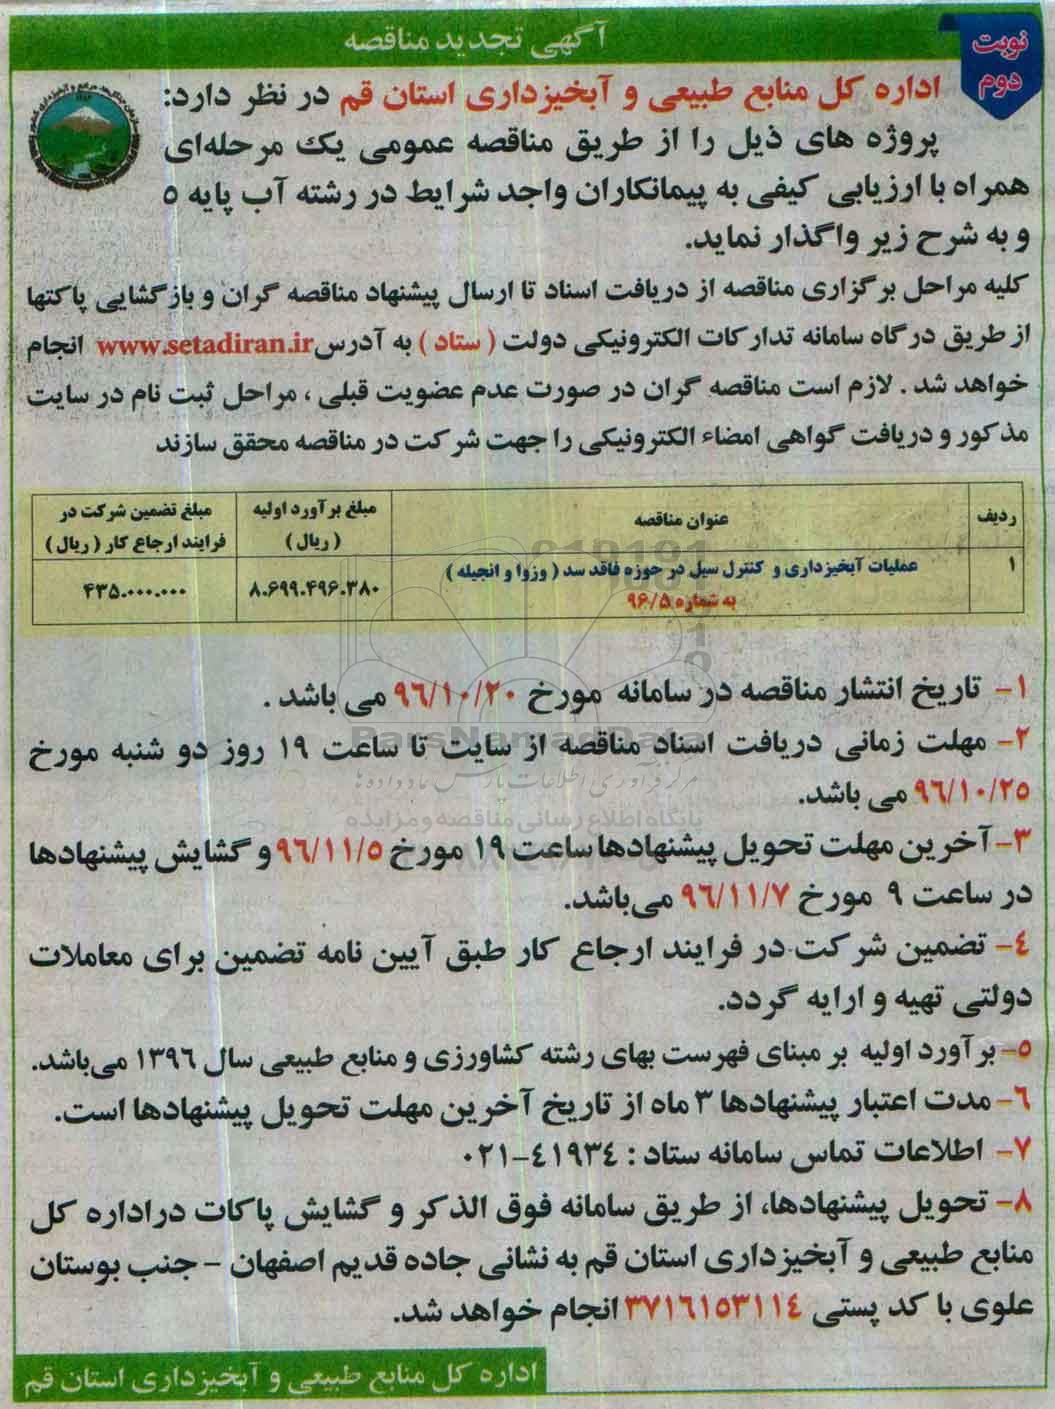 نوبت
دوم
آگهی تجدید مناقصه
اداره کل منابع طبیعی و آبخیزداری استان قم در نظر دارد:
پروژه های ذیل را از طریق مناقصه عمومی یک مرحله‌ای
همراه با ارزیابی کیفی به پیمانکاران واجد شرایط در رشته آب پایه ۵
و به شرح زیر واگذار نماید.
کلیه مراحل برگزاری مناقصه از دریافت اسناد تا ارسال پیشنهاد مناقصه گران و بازگشایی پاکتها
از طریق درگاه سامانه تدارکات الکترونیکی دولت (ستاد) به آدرس www.setadiran.ir انجام
خواهد شد . لازم است مناقصه گران در صورت عدم عضویت قبلی ، مراحل ثبت نام در سایت
مذکور و دریافت گواهی امضاء الکترونیکی را جهت شرکت در مناقصه محقق سازند
ردیف
عنوان مناقصه
مبلغ برآورد اولیه
(ریال)
مبلغ تضمین شرکت در
فرایند ارجاع کار (ریال)
۱
عملیات آبخیزداری و کنترل سیل در حوزه فاقد سد (وزوا و انجیله)
به شماره ۹۶/۵
۸.۶۹۹.۴۹۶.۳۸۰
۴۳۵.۰۰۰.۰۰۰
۱- تاریخ انتشار مناقصه در سامانه مورخ ۹۶/۱۰/۲۰ می باشد .
۲- مهلت زمانی دریافت اسناد مناقصه از سایت تا ساعت ۱۹ روز دو شنبه مورخ
۹۶/۱۰/۲۵ می باشد.
۳- آخرین مهلت تحویل پیشنهادها ساعت ۱۹ مورخ ۹۶/۱۱/۵ و گشایش پیشنهادها
در ساعت ۹ مورخ ۹۶/۱۱/۷ می‌باشد.
۴- تضمین شرکت در فرایند ارجاع کار طبق آیین نامه تضمین برای معاملات
دولتی تهیه و ارایه گردد.
۵- برآورد اولیه بر مبنای فهرست بهای رشته کشاورزی و منابع طبیعی سال ۱۳۹۶ می‌باشد.
۶- مدت اعتبار پیشنهادها ۳ ماه از تاریخ آخرین مهلت تحویل پیشنهادها است.
۷- اطلاعات تماس سامانه ستاد : ۴۱۹۳۴-۰۲۱
۸- تحویل پیشنهادها، از طریق سامانه فوق الذکر و گشایش پاکات در اداره کل
منابع طبیعی و آبخیزداری استان قم به نشانی جاده قدیم اصفهان - جنب بوستان
علوی با کد پستی ۳۷۱۶۱۵۳۱۱۴ انجام خواهد شد.
اداره کل منابع طبیعی و آبخیزداری استان قم
ParsNamadData
مرکز فرآوری اطلاعات پارس نماد داده ها
پایگاه اطلاع رسانی مناقصه و مزایده